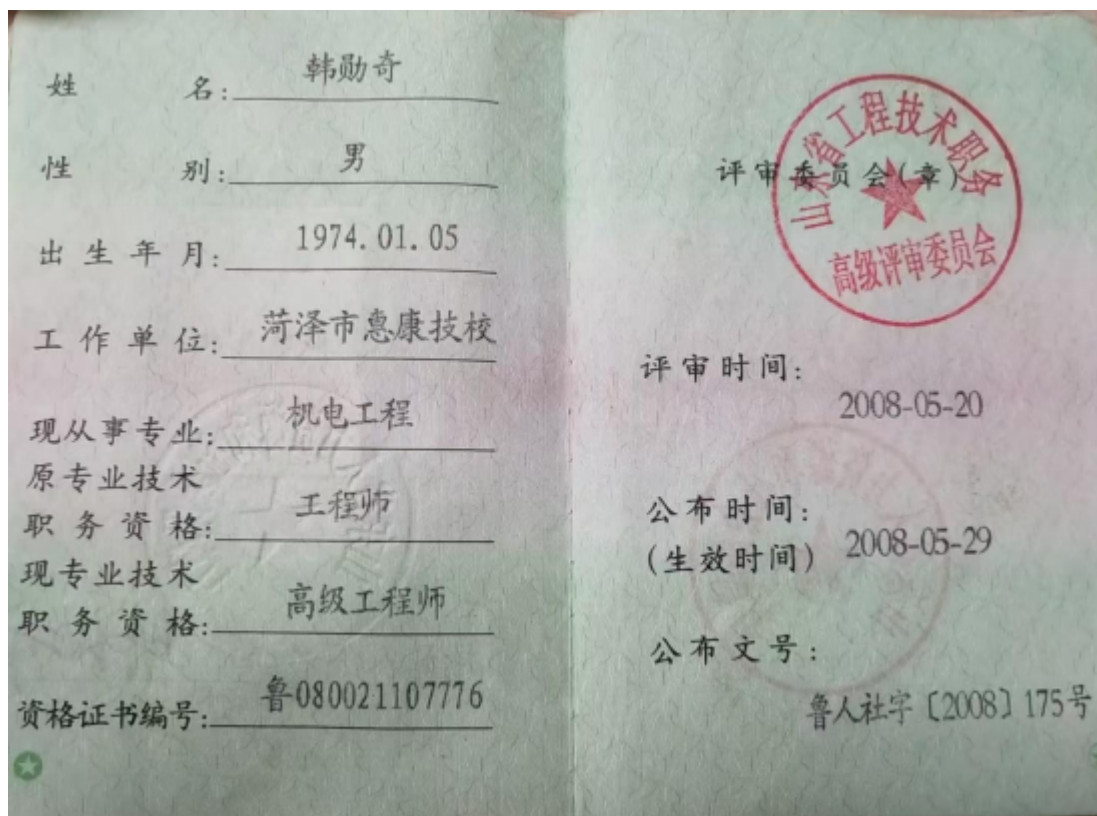 姓 名: 韩勋奇
性 别: 男
出生年月: 1974.01.05
工作单位: 菏泽市惠康技校
现从事专业: 机电工程
原专业技术
职务资格: 工程师
现专业技术
职务资格: 高级工程师
资格证书编号: 鲁080021107776
山东省工程技术职务
评审委员会(章)
高级评审委员会
评审时间:
2008-05-20
公布时间:
(生效时间) 2008-05-29
公布文号:
鲁人社字〔2008〕175号